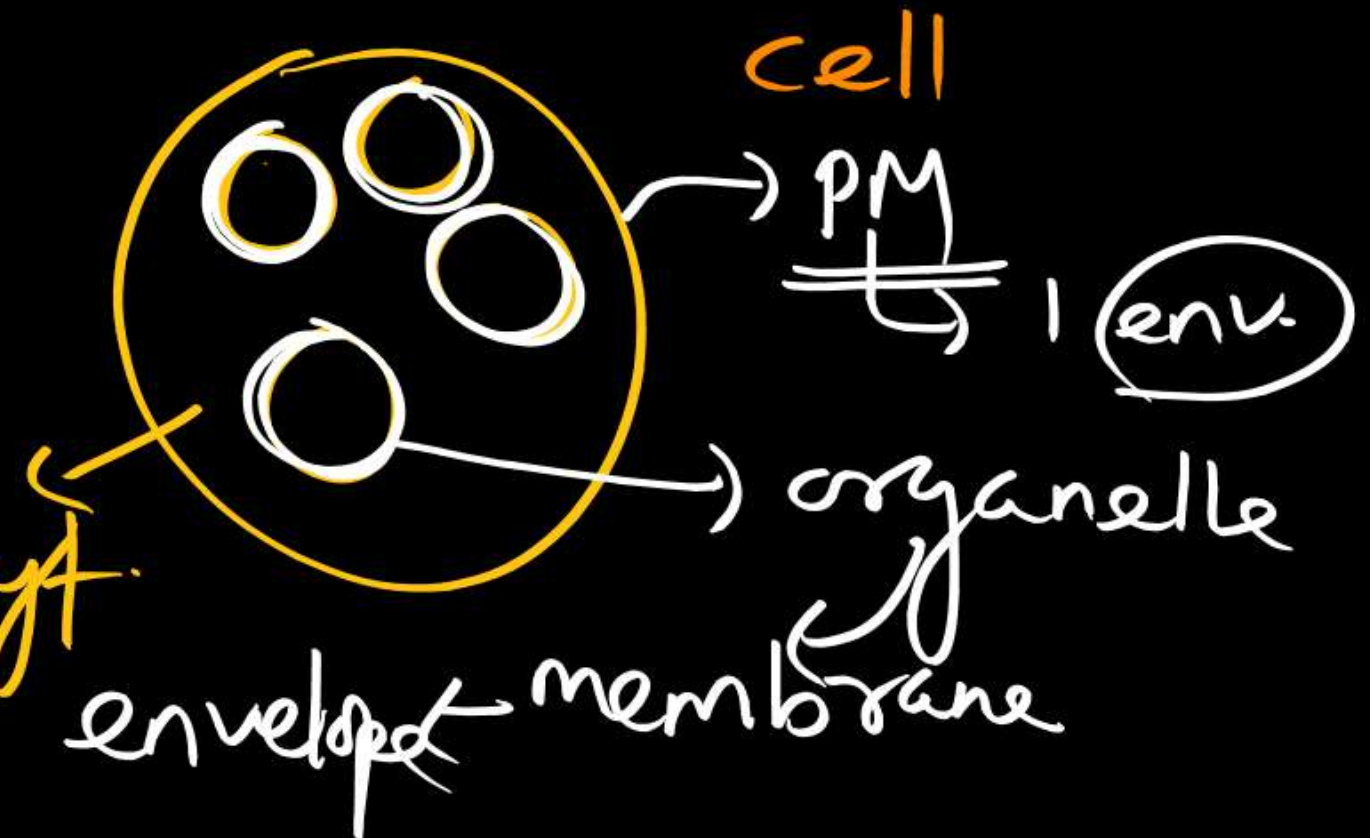 cell
PM
1 env.
organelle
membrane
envelope